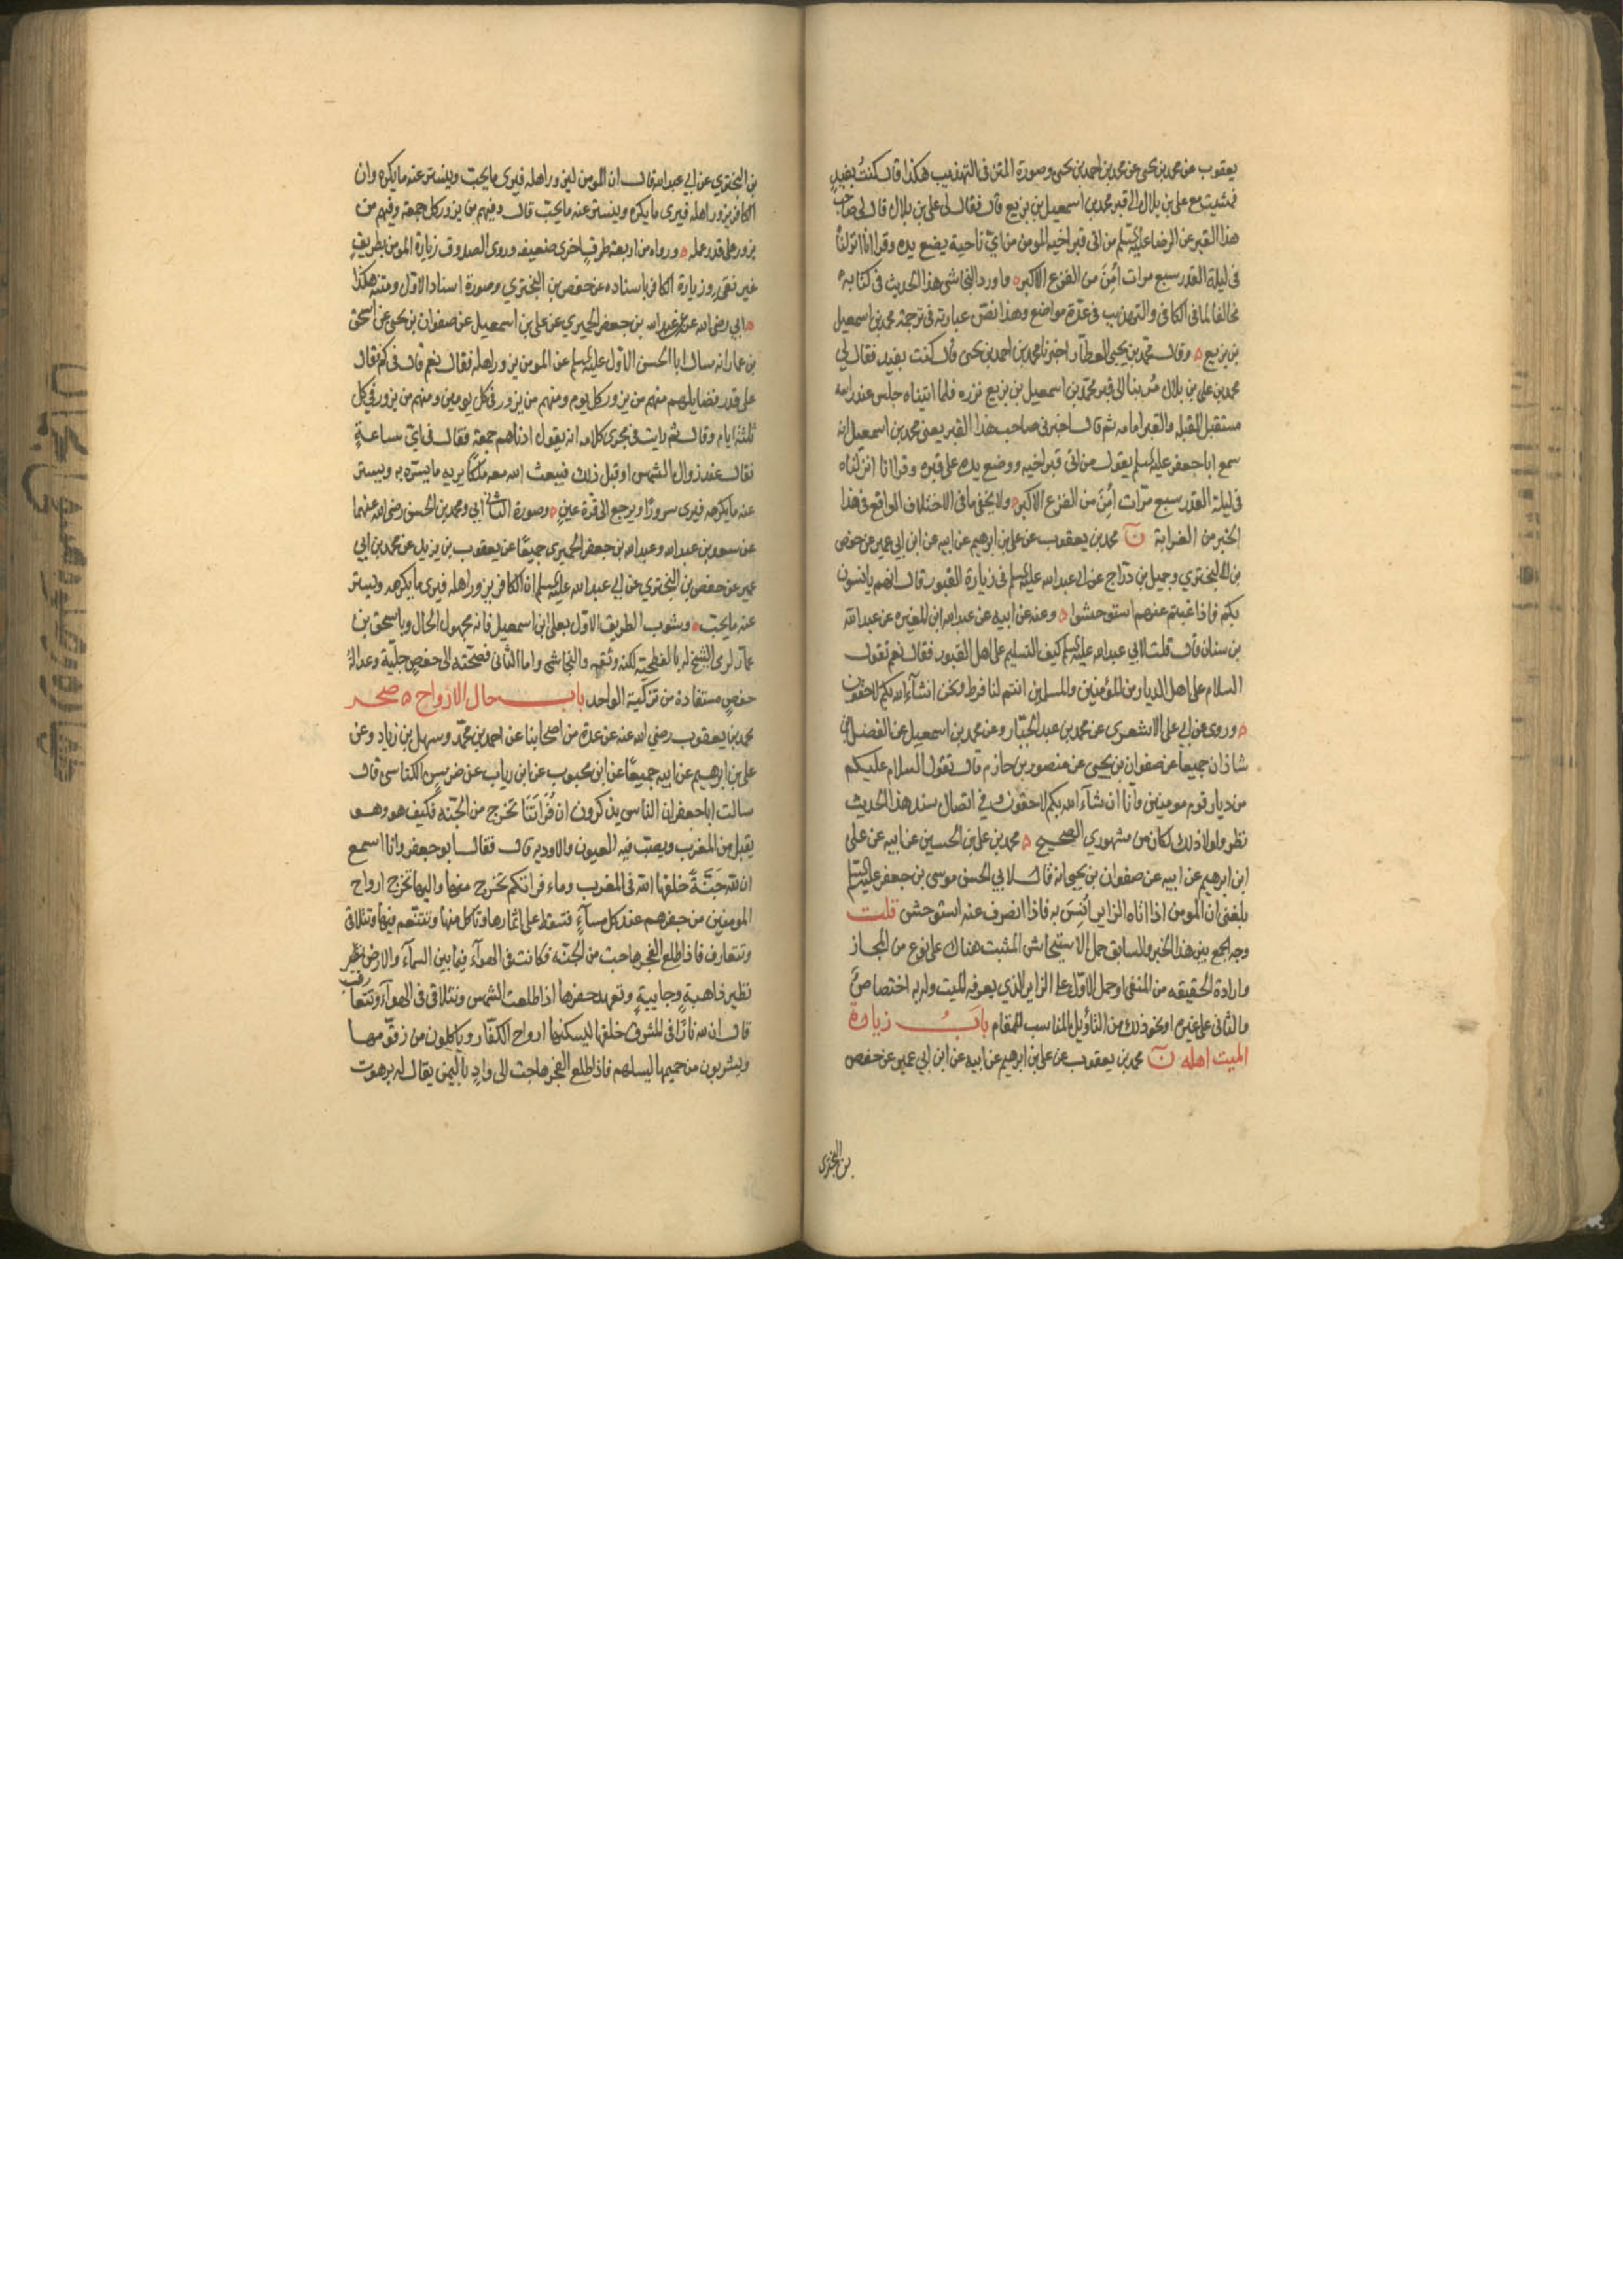 يعقوب عن محمد بن يحيى عن محمد بن احمد بن يحيى وصورة المتن فى التهذيب هكذا قال كنت بفيد
فمشيت مع على بن بلال الى قبر محمد بن اسمعيل بن بزيع قال فقال لى على بن بلال قال لى صاحب
هذا القبر عن الرضا عليه السلم من اتى قبر اخيه المومن من اىّ ناحية يضع يده وقرا انا انزلناه
فى ليلة القدر سبع مرات اُمِنَ من الفزع الاكبر ه واورد النجاشى هذا الحديث فى كتابه
مخالفا لما فى الكافى والتهذيب فى عدّة مواضع وهذا نصّ عبارته فى ترجمة محمد بن اسمعيل
بن بزيع ه وقال محمّد بن يحيى العطّار اخبرنا محمد بن احمد بن يحيى قال كنت بفيد فقال لى
محمد بن على بن بلال مُر بنا الى قبر محمّد بن اسمعيل بن بزيع نزره فلما اتيناه جلس عند راسه
مستقبل القبله والقبر امامه ثم قال اخبرنى صاحب هذا القبر يعنى محمد بن اسمعيل انه
سمع ابا جعفر عليه السلم يقول من اتى قبر اخيه ووضع يده على قبره وقرا انا انزلناه
فى ليلة القدر سبع مرّات اُمِنَ من الفزع الاكبر ه ولا يخفى ما فى الاختلاف الواقع فى هذا
الخبر من الغرابة ن محمد بن يعقوب عن على بن ابرهيم عن ابيه عن ابن ابى عمير عن حفص
بن البخترى وجميل بن درّاج عن ابى عبدالله عليه السلم فى زيارة القبور قال انهم يانسون
بكم فاذا غبتم عنهم استوحشوا ه وعنه عن ابيه عن عبدالله ابن المغيره عن عبد الله
بن سنان قال قلت لابى عبد الله عليه السلم كيف التسليم على اهل القبور فقال نعم تقول
السلام على اهل الديار من المؤمنين والمسلمين انتم لنا فرط ونحن انشآء الله بكم لاحقون
ه وروى عن ابى على الاشعرى عن محمد بن عبد الجبّار وعن محمد بن اسمعيل عن الفضل بن
شاذان جميعا عن صفوان بن يحيى عن منصور بن حازم قال تقول السلام عليكم
من ديار قوم مومنين وانا ان شآء الله بكم لاحقون وفى اتصال سند هذا الحديث
نظر ولولا ذلك لكان من مشهورى الصحيح ه محمد بن على بن الحسين عن ابيه عن على
ابن ابرهيم عن ابيه عن صفوان بن يحيى انه قال لابى الحسن موسى بن جعفر عليه السلم
بلغنى ان المومن اذا اتاه الزاير اَنِسَ به فاذا انصرف عنه استوحش قلت
وجه الجمع بين هذا الخبر والسابق حمل الاستيحاش المثبت هناك على نوع من المجاز
وارادة الحقيقه من المنفى او حمل الاوّل على الزاير الذى يعرفه الميت وله به اختصاصٌ
والثانى على غيره او نحو ذلك من التاويل المناسب للمقام بابُ زيادة
الميت اهله ن محمد بن يعقوب عن على بن ابرهيم عن ابيه عن ابن ابى عمير عن حفص
بن البخترى
بن البخترى عن ابى عبدالله قال ان المومن ليزور اهله فيرى ما يحبّ ويستر عنه ما يكره وان
الكافر يزور اهله فيرى ما يكره ويستر عنه ما يحبّ قال ومنهم من يزور كل جمعة وفيهم من
يزور على قدر عمله ه ورواه من اربعة طرق اخرى ضعيفه وروى الصدوق زيارة المومن بطريق
غير نقى وزيارة الكافر باسناده عن حفص بن البخترى وصورة اسناد الاوّل ومتنه هكذا
ه ابى رضى الله عنه عن عبدالله بن جعفر الحميرى عن على بن اسمعيل عن صفوان بن يحيى عن اسحق
بن عمار انه سال ابا الحسن الاوّل عليه السلم عن المومن يزور اهله فقال نعم قال فى كم فقال
على قدر فضايلهم منهم من يزور كل يوم ومنهم من يزور فى كل يومين ومنهم من يزور فى كل
ثلثة ايام وقال ثم رايت فى مجرى كلامه انه يقول ادناهم جمعة فقال فى اىّ ساعةٍ
فقال عند زوال الشمس او قبل ذلك فيبعث الله معه ملكاً يريه ما يسّره به ويستر
عنه ما يكرهه فيرى سرورًا ويرجع الى قرّة عين ه وصورة الثانى ابى ومحمد بن الحسن رضى الله عنهما
عن سعد بن عبدالله وعبدالله بن جعفر الحميرى جميعًا عن يعقوب بن يزيد عن محمد بن ابى
عمير عن حفص بن البخترى عن ابى عبد الله عليه السلم ان الكافر يزور اهله فيرى ما يكرهه ويستر
عنه ما يحبّ ه ويشوب الطريق الاوّل بعلى ابن اسمعيل فانه مجهول الحال وباسحق بن
عمّار لرمى الشيخ له بالفطحيّة لكنه وثّقه والنجاشى واما الثانى فصحّته الى حفص جليّة وعدالة
حفص مستفادة من تزكية الواحد باب حال الارواح ه صحر
محمد بن يعقوب رضى الله عنه عن عدة من اصحابنا عن احمد بن محمّد وسهل بن زياد وعن
على بن ابرهيم عن ابيه جميعًا عن ابن محبوب عن ابن رياب عن ضريس الكناسى قال
سالت ابا جعفر ان الناس يذكرون ان فُرَاتَنَا تخرج من الجنّه فكيف هو وهو
يقبل من المغرب ويصبّ فيه العيون والاوديه قال فقال ابو جعفر وانا اسمع
ان لله جَنَّةً خلقها الله فى المغرب وماء فراتكم تخرج منها واليها تخرج ارواح
المومنين من حفرهم عند كل مسآءٍ فتسقط على اثمارها وتاكل منها وتتنعم فيها وتتلاقى
وتتعارف فاذا طلع الفجر هاجت من الجنّه فكانت فى الهوآء فيما بين السمآء والارض تطير
ذاهبةٍ وجايية وتعهد حفرها اذا طلعت الشمس وتتلاقى فى الهوآء وتتعارف
قال ان لله نارًا فى المشرق خلقها ليسكنها ارواح الكفّار وياكلون من زقّومها
ويشربون من حميمها ليلهم فاذا طلع الفجر هاجت الى وادٍ باليمن يقال له برهوت